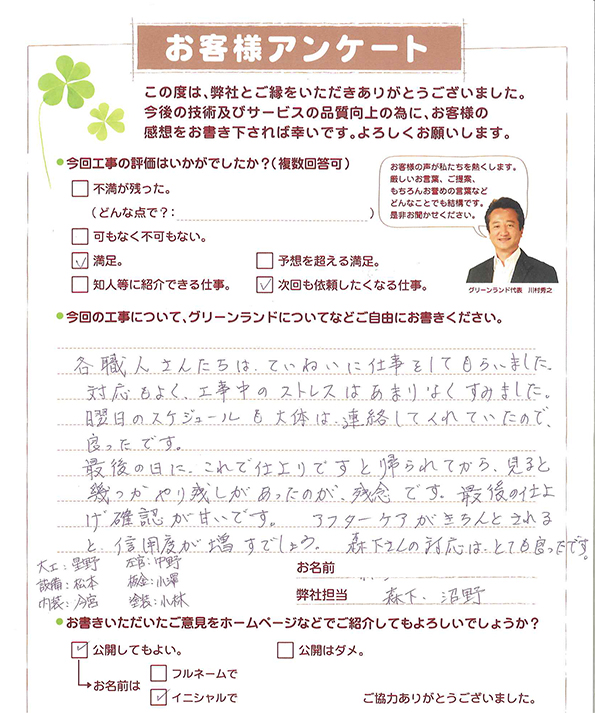 お客様アンケート
この度は、弊社とご縁をいただきありがとうございました。
今後の技術及びサービスの品質向上の為に、お客様の
感想をお書き下されば幸いです。よろしくお願いします。
●今回工事の評価はいかがでしたか?(複数回答可)
お客様の声が私たちを熱くします。
厳しいお言葉、ご提案、
もちろんお誉めの言葉など
どんなことでも結構です。
是非お聞かせください。
グリーンランド代表 川村秀之
不満が残った。
(どんな点で?: )
可もなく不可もない。
満足。 予想を超える満足。
知人等に紹介できる仕事。 次回も依頼したくなる仕事。
●今回の工事について、グリーンランドについてなどご自由にお書きください。
各職人さんたちは、ていねいに仕事をしてもらいました。
対応もよく、工事中のストレスはあまりなくすみました。
曜日のスケジュールも大体は、連絡してくれていたので、
良ったです。
最後の日に、これで仕上りですと帰られてから、見ると
幾つかやり残しがあったのが、残念です。最後の仕上
げ確認が甘いです。 アフターケアがきちんとされる
と、信用度が増すでしょう。 森下さんの対応は、とても良ったです。
大工:星野 左官:中野
設備:松本 板金:小澤
内装:今宮 塗装:小林
お名前
弊社担当 森下、沼野
●お書きいただいたご意見をホームページなどでご紹介してもよろしいでしょうか?
公開してもよい。 公開はダメ。
お名前は フルネームで
イニシャルで
ご協力ありがとうございました。